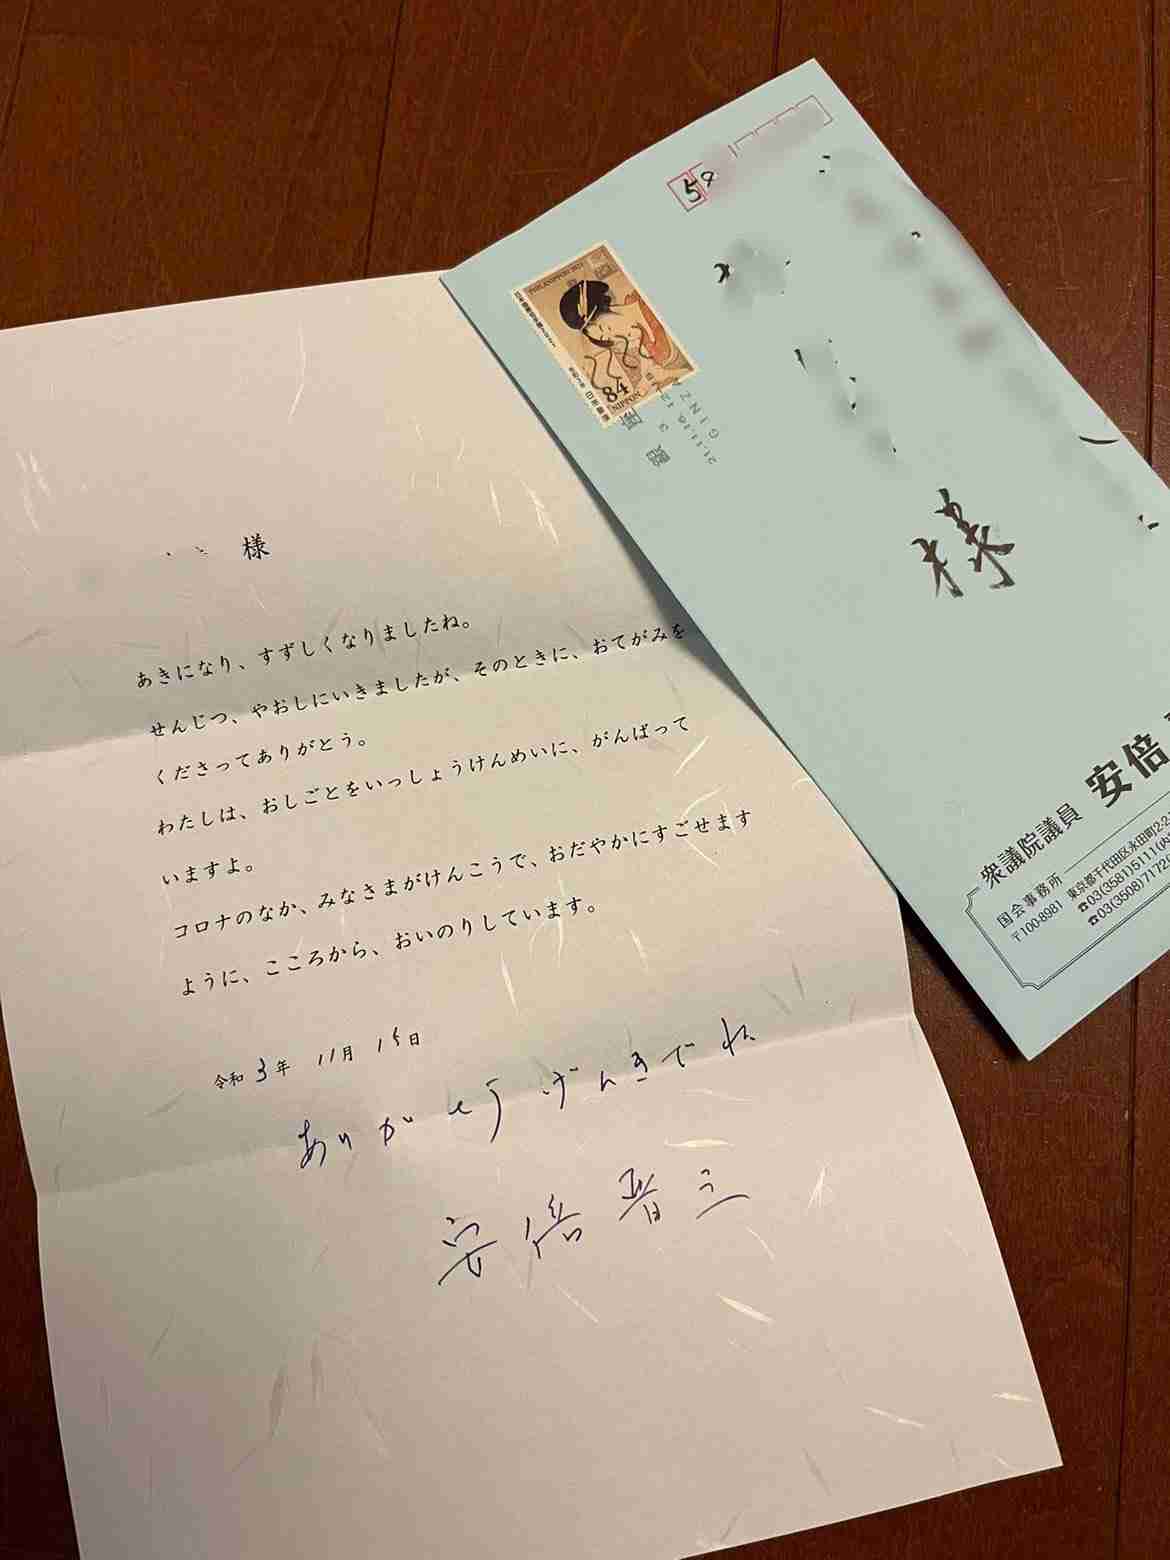 様
あきになり、すずしくなりましたね。
せんじつ、やおしにいきましたが、そのときに、おてがみを
くださってありがとう。
わたしは、おしごとをいっしょうけんめいに、がんばって
いますよ。
コロナのなか、みなさまがけんこうで、おだやかにすごせます
ように、こころから、おいのりしています。
令和3年 11月 15日
ありがとう げんきでね
安倍晋三
59
PHILANIPPON 2021
84
日本郵便
NIPPON
銀座
21.11.16
GINZA
様
衆議院議員 安倍
国会事務所
〒100-8981 東京都千代田区永田町2-2
☎03(3581)5111(内
☎03(3508)7172